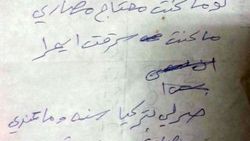 لوما كنت محتاج مصاري
ما كنت سرقت
صرلي بتركيا سنه وما عندي